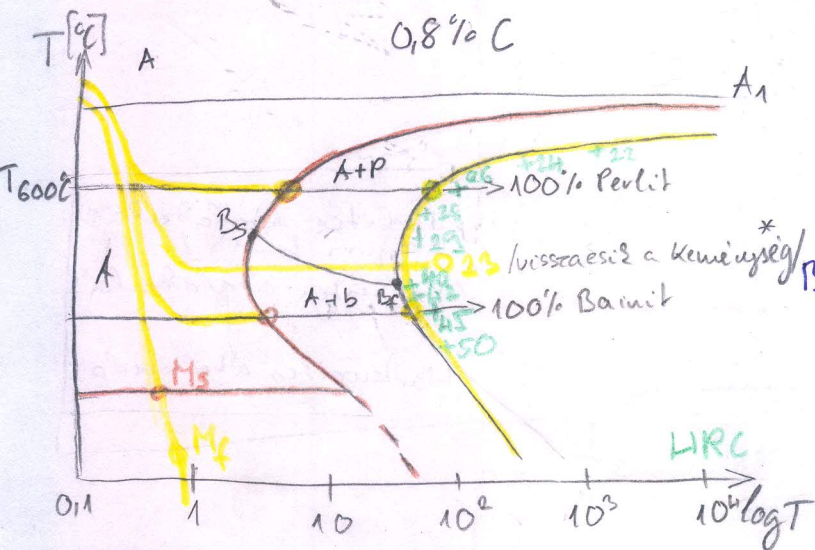 T[°C]
A
0,8% C
A1
T600°C
A+P
+26
+24
+22
→100% Perlit
+25
+29
Bs
A
23 /visszaesik a keménység/
*
A+b
Bf
+40
+42
→100% Bainit
+45
+50
Ms
Mf
HRC
0,1
1
10
10²
10³
10⁴
logT